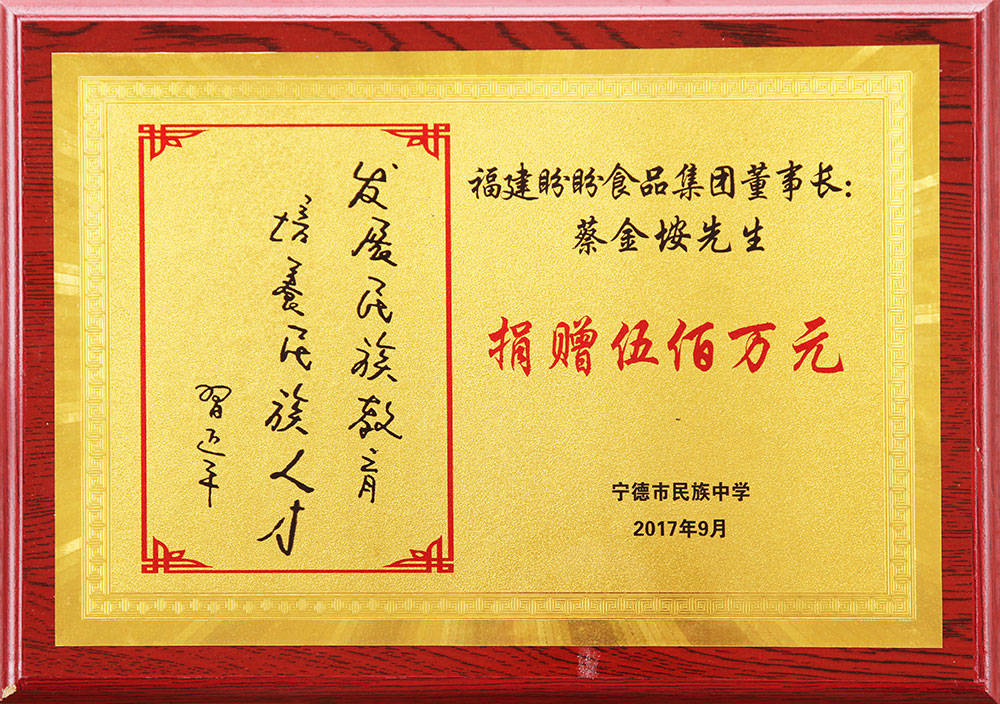 发展民族教育
培养民族人才
习近平
福建盼盼食品集团董事长：
蔡金垵先生
捐赠伍佰万元
宁德市民族中学
2017年9月